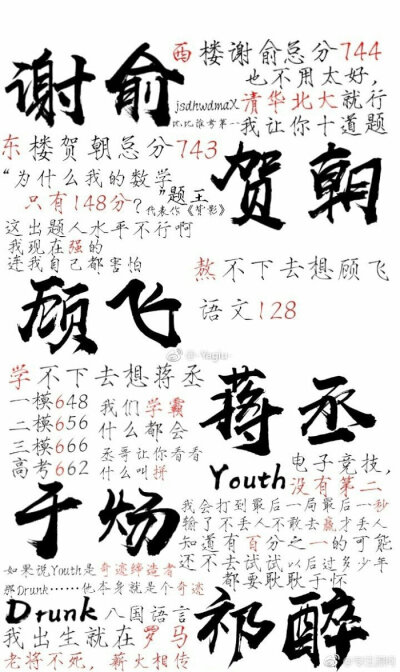 谢俞
西楼谢俞总分744
也不用太好，
jsdhwdmaX
清华北大就行
比比谁考第一
我让你十道题
东楼贺朝总分743
贺朝
“为什么我的数学
只有148分？”
题王
代表作《背影》
这出题人水平不行啊
我现在强的
连我自己都害怕
熬不下去想顾飞
顾飞
语文128
学不下去想蒋丞
蒋丞
一模648
二模656
三模666
高考662
我们学霸
什么都会
丞哥让你看看
什么叫拼
Youth
电子竞技，
没有第二
于炀
我会打到最后一局最后一秒
输了不丢人不敢去赢才丢人
知道有百分之一的可能
还不去试试以后过多少年
都要耿耿于怀
如果说Youth是奇迹缔造者
那Drunk……他本身就是个奇迹
Drunk
八国语言
祁醉
我出生就在罗马
老将不死，薪火相传
@-Yagiu